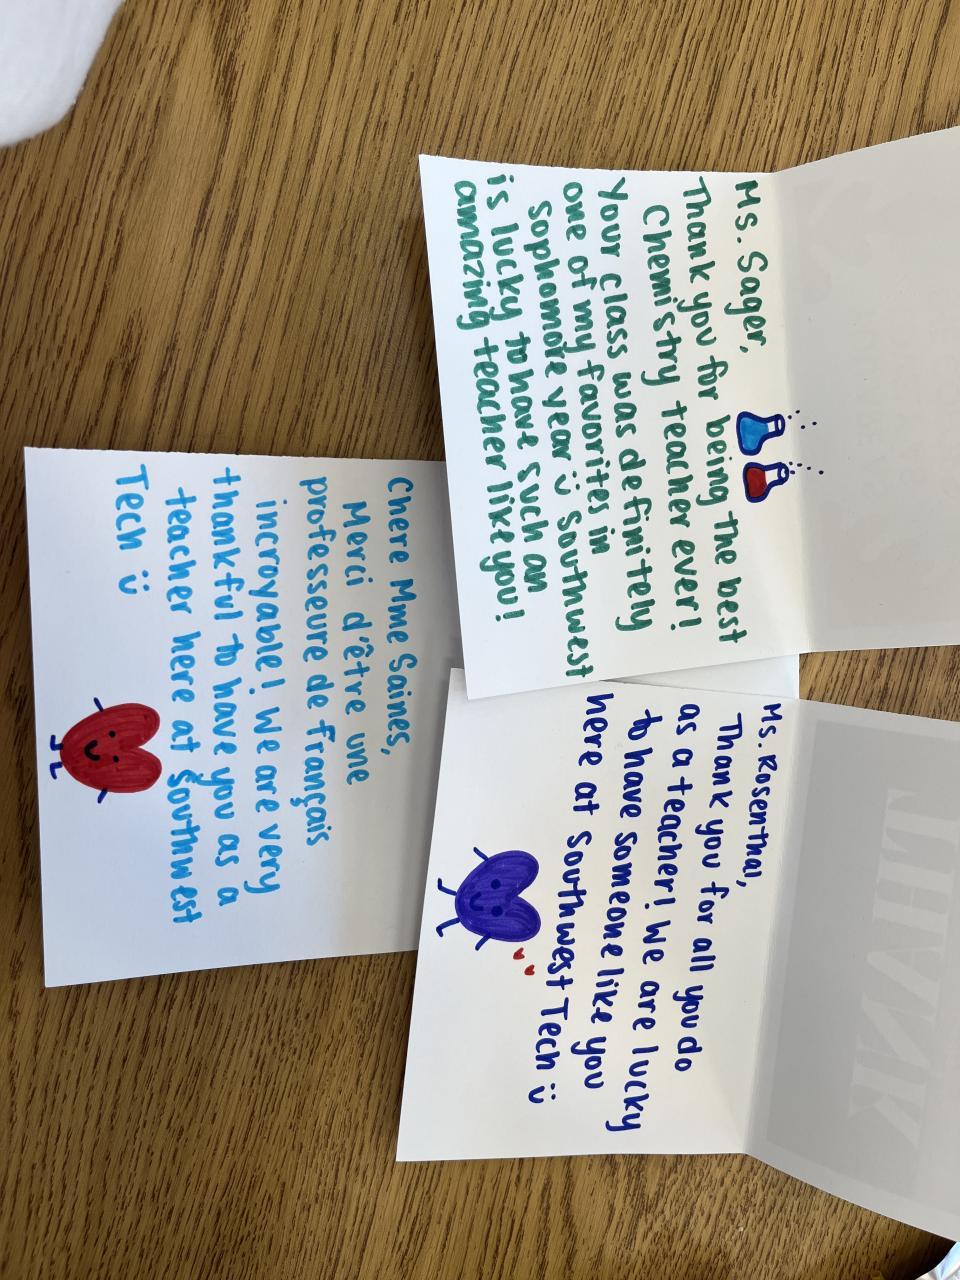 Ms. Sager,
Thank you for being the best
Chemistry teacher ever!
Your class was definitely
one of my favorites in
Sophomore year :) Southwest
is lucky to have such an
amazing teacher like you!
Ms. Rosenthal,
Thank you for all you do
as a teacher! We are lucky
to have someone like you
here at Southwest Tech :)
Chere Mme Saines,
Merci d'être une
professeure de français
incroyable! We are very
thankful to have you as a
teacher here at Southwest
Tech :)
THANK